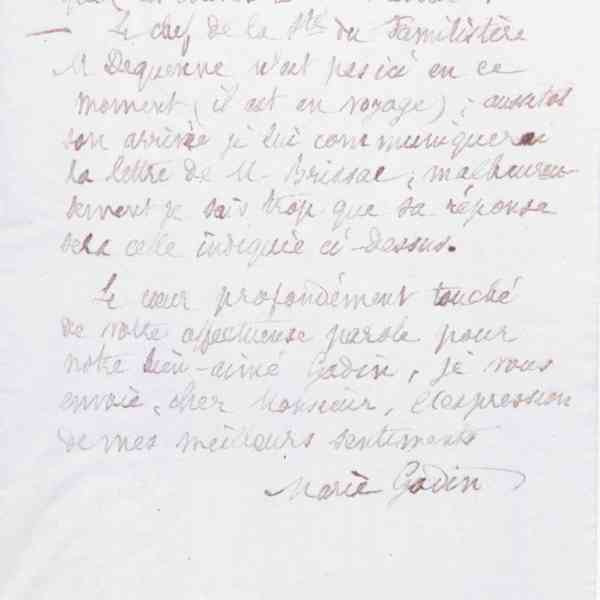 — Le chef de la Sté du Familistère
M Dequenne n'est pas ici en ce
moment (il est en voyage) ; aussitôt
son arrivée je lui communiquerai
la lettre de M. Brissac ; malheureu-
sement je sais trop que sa réponse
sera celle indiquée ci-dessus.
Le cœur profondément touché
de votre affectueuse parole pour
notre bien-aimé Godin, je vous
envoie, cher Monsieur, l'expression
de mes meilleurs sentiments
Marie Godin